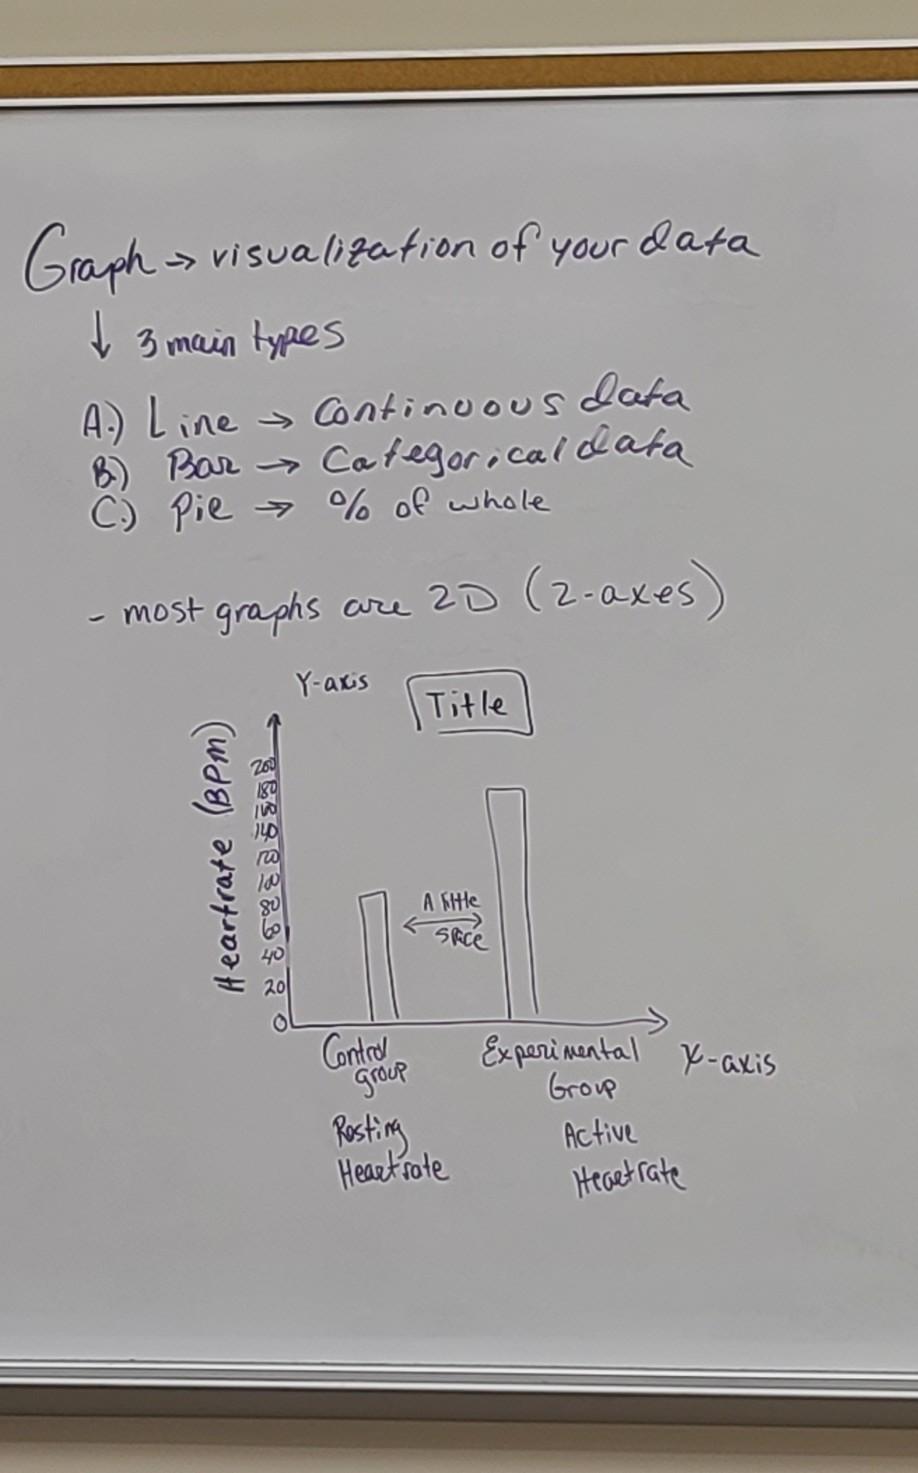 Graph → visualization of your data
↓ 3 main types
A.) Line → Continuous data
B.) Bar → Categorical data
C.) Pie → % of whole
- most graphs are 2D (2-axes)
Y-axis
Title
Heartrate (BPM)
200
180
160
140
120
100
80
60
40
20
0
A little
space
Control
group
Resting
Heartrate
Experimental
Group
Active
Heartrate
X-axis